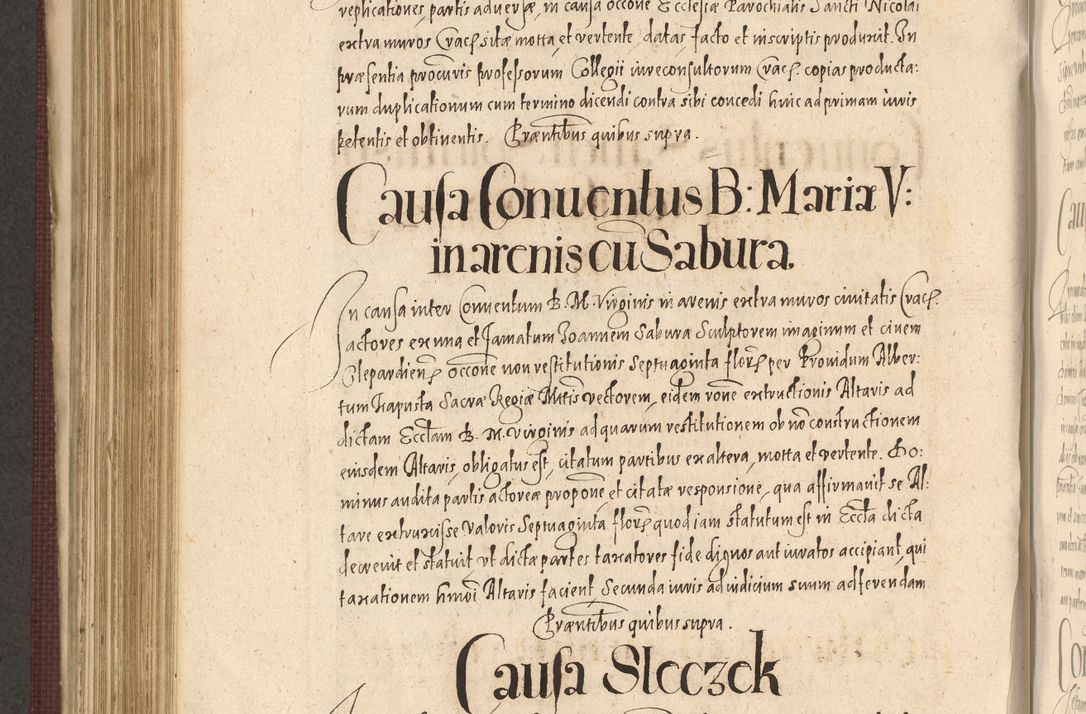 replicationes partis adversæ, in causa occone Ecclesiæ Parochialis Sancti Nicolai
extra muros Crac: sitæ motta et vertente, datas facto et in scriptis produxit. In
præsentia procuris professorum Collegii iureconsultorum Crac: copias producta:
rum duplicationum cum termino dicendi contra sibi concedi huic ad primam iuris
petentis et obtinentis. Præntibus quibus supra.
Causa Conuentus B: Mariæ V:
in arenis cū Sabura.
In causa inter Conuentum B. M. Virginis in arenis extra muros ciuitatis Crac:
actores ex una et famatum Joannem Sabura Sculptorem imaginum et ciuem
Clepardien: occone non restitutionis Septuaginta flor: per Prouidum Alber:
tum Kapusta Sacræ Regiæ Mttis vectorem, eidem rone extructionis Altaris ad
dictam Ecctam B. M. Virginis ad quarum restitutionem ob nō constructionem
eiusdem Altaris, obligatus est, citatum partibus ex altera, motta et vertente. Do:
minus audita partis actoreæ propone et citatæ responsione, qua affirmauit se Al:
tare extruxisse valoris Septuaginta flor: quod iam statutum est in Eccta dicta
decreuit et statuit ut dictæ partes taxatores fide dignos aut iuratos accipiant, qui
taxationem hmōi Altaris facient, Secunda iuris ad iudicium suum ad ferendam
Præntibus quibus supra.
Causa Sleczek